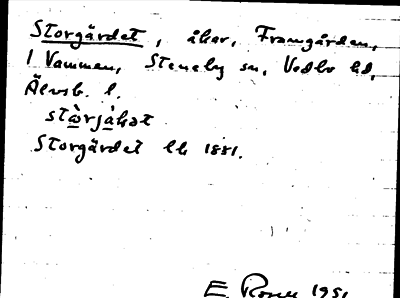 Storgärdet, åker, Framgården,
1 Vammen, Steneby sn, Vedbo hd,
Älvsb. l.
stὰrjὰʜət
Storgärdet lk 1881.
E. Rosell 1951